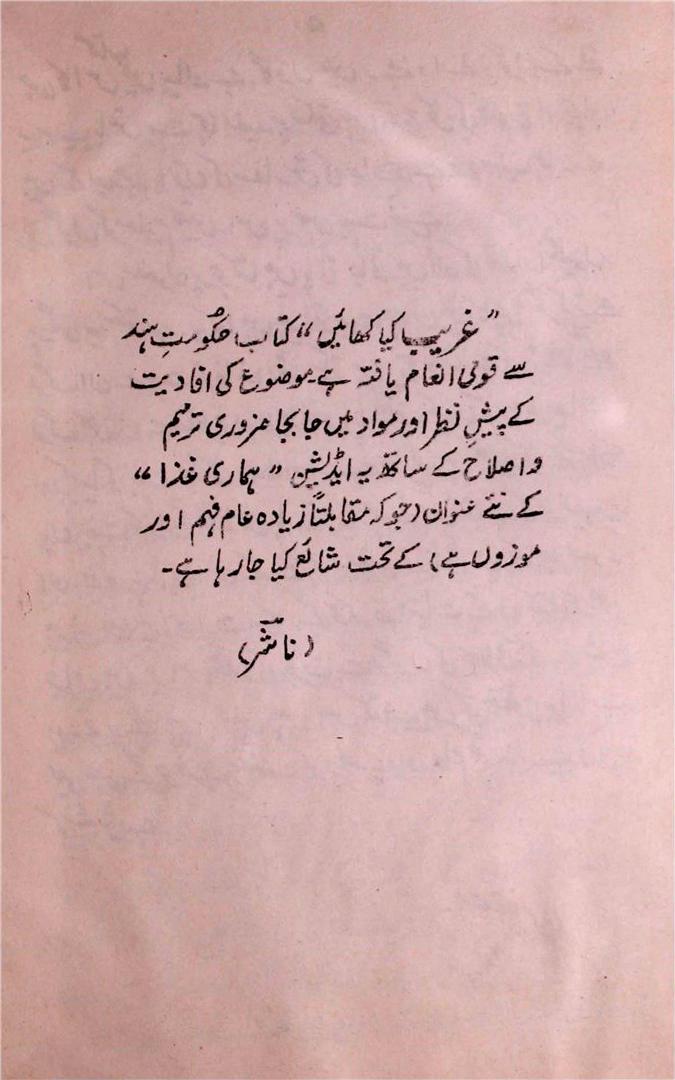 "غریب کیا کھائیں" کتاب حکومتِ ہند
سے قومی انعام یافتہ ہے۔ موضوع کی افادیت
کے پیشِ نظر اور مواد میں جابجا ضروری ترمیم
و اصلاح کے ساتھ یہ ایڈیشن "ہماری غذا"
کے نئے عنوان (جو کہ مقابلتاً زیادہ عام فہم اور
موزوں ہے) کے تحت شائع کیا جا رہا ہے۔
(ناشر)